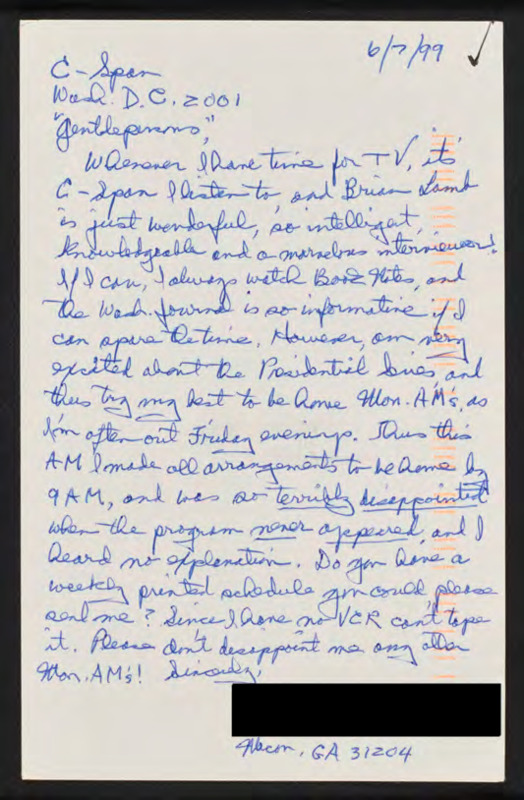 6/7/99
C-Span
Wash. D.C. 2001
"Gentlepersons",
Whenever I have time for TV, it's
C-Span I listen to, and Brian Lamb
is just wonderful, so intelligent,
knowledgeable and a marvelous interviewer!
If I can, I always watch Book Notes, and
the Wash. Journal is so informative if I
can spare the time. However, am very
excited about the Presidential Series, and
thus try my best to be home Mon. AM's, as
I'm often out Friday evenings. Thus this
AM I made all arrangements to be home by
9 AM, and was so terribly disappointed
when the program never appeared, and I
heard no explanation. Do you have a
weekly printed schedule you could please
send me? Since I have no VCR can't tape
it. Please don't disappoint me any other
Mon. AM's! Sincerely,
Macon, GA 31204